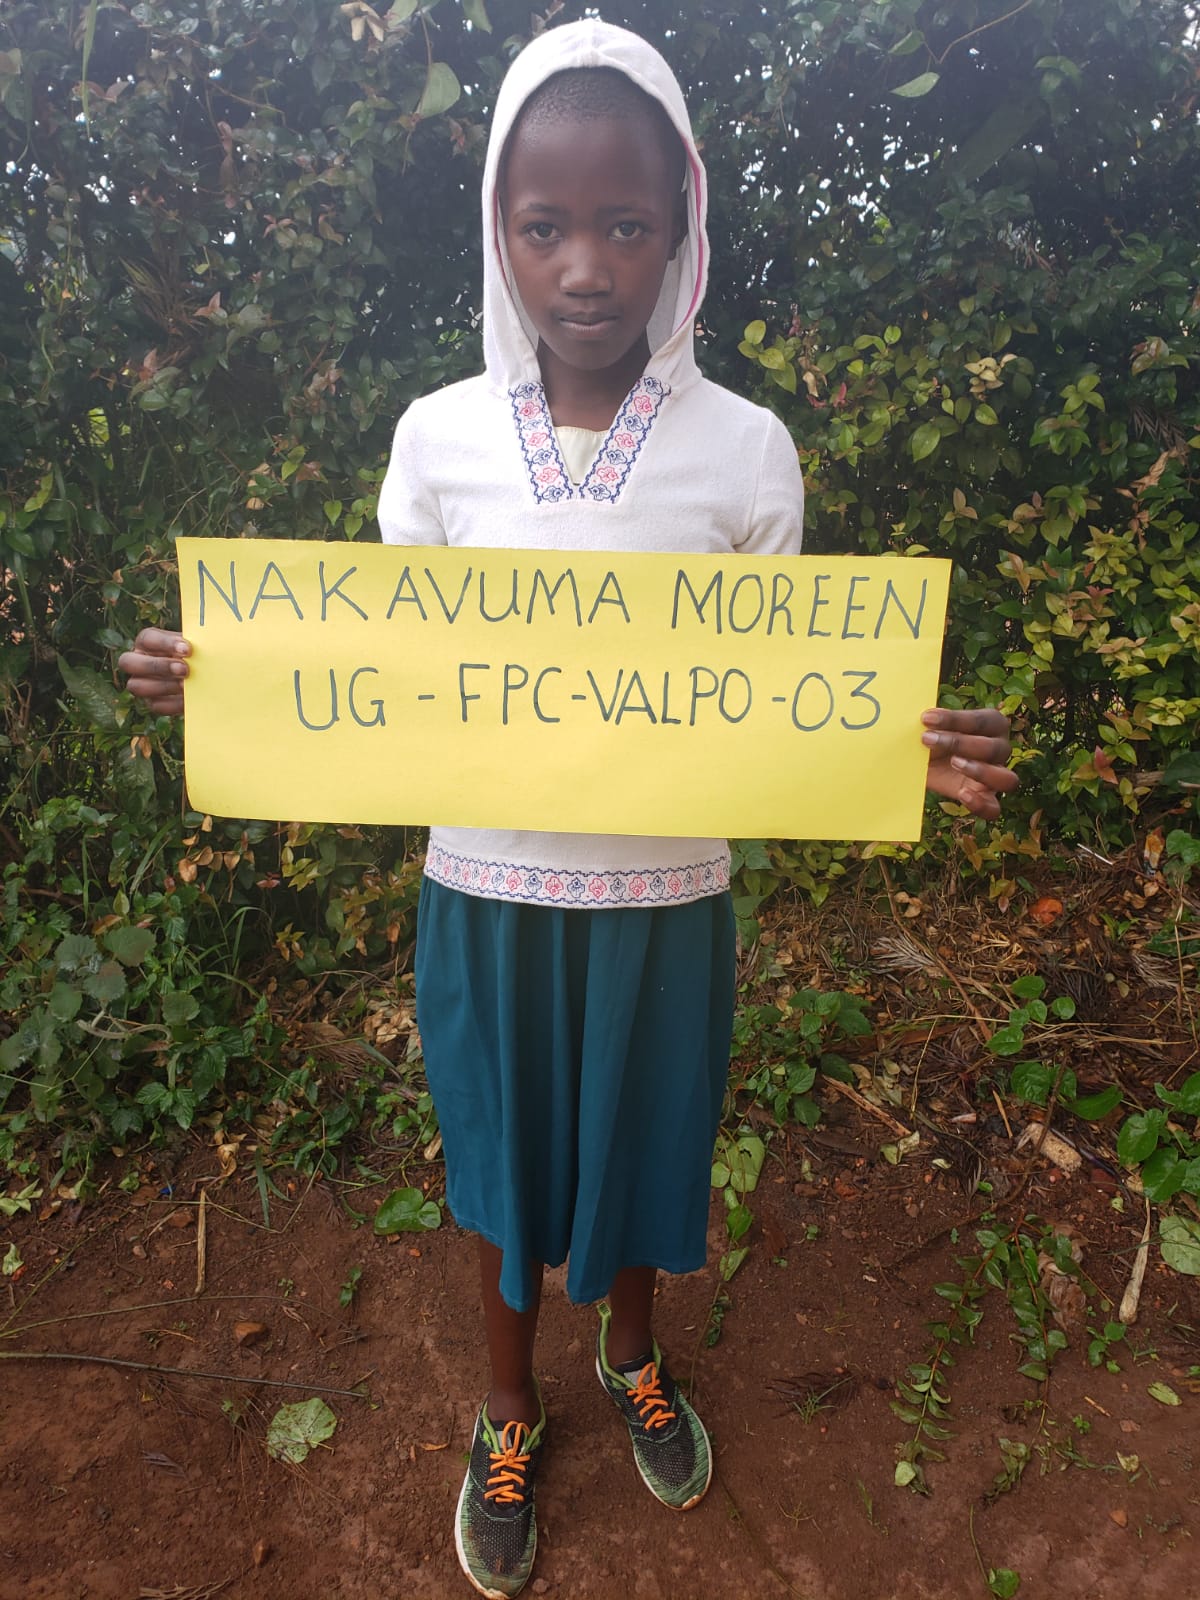 NAKAVUMA MOREEN
UG - FPC-VALPO-03